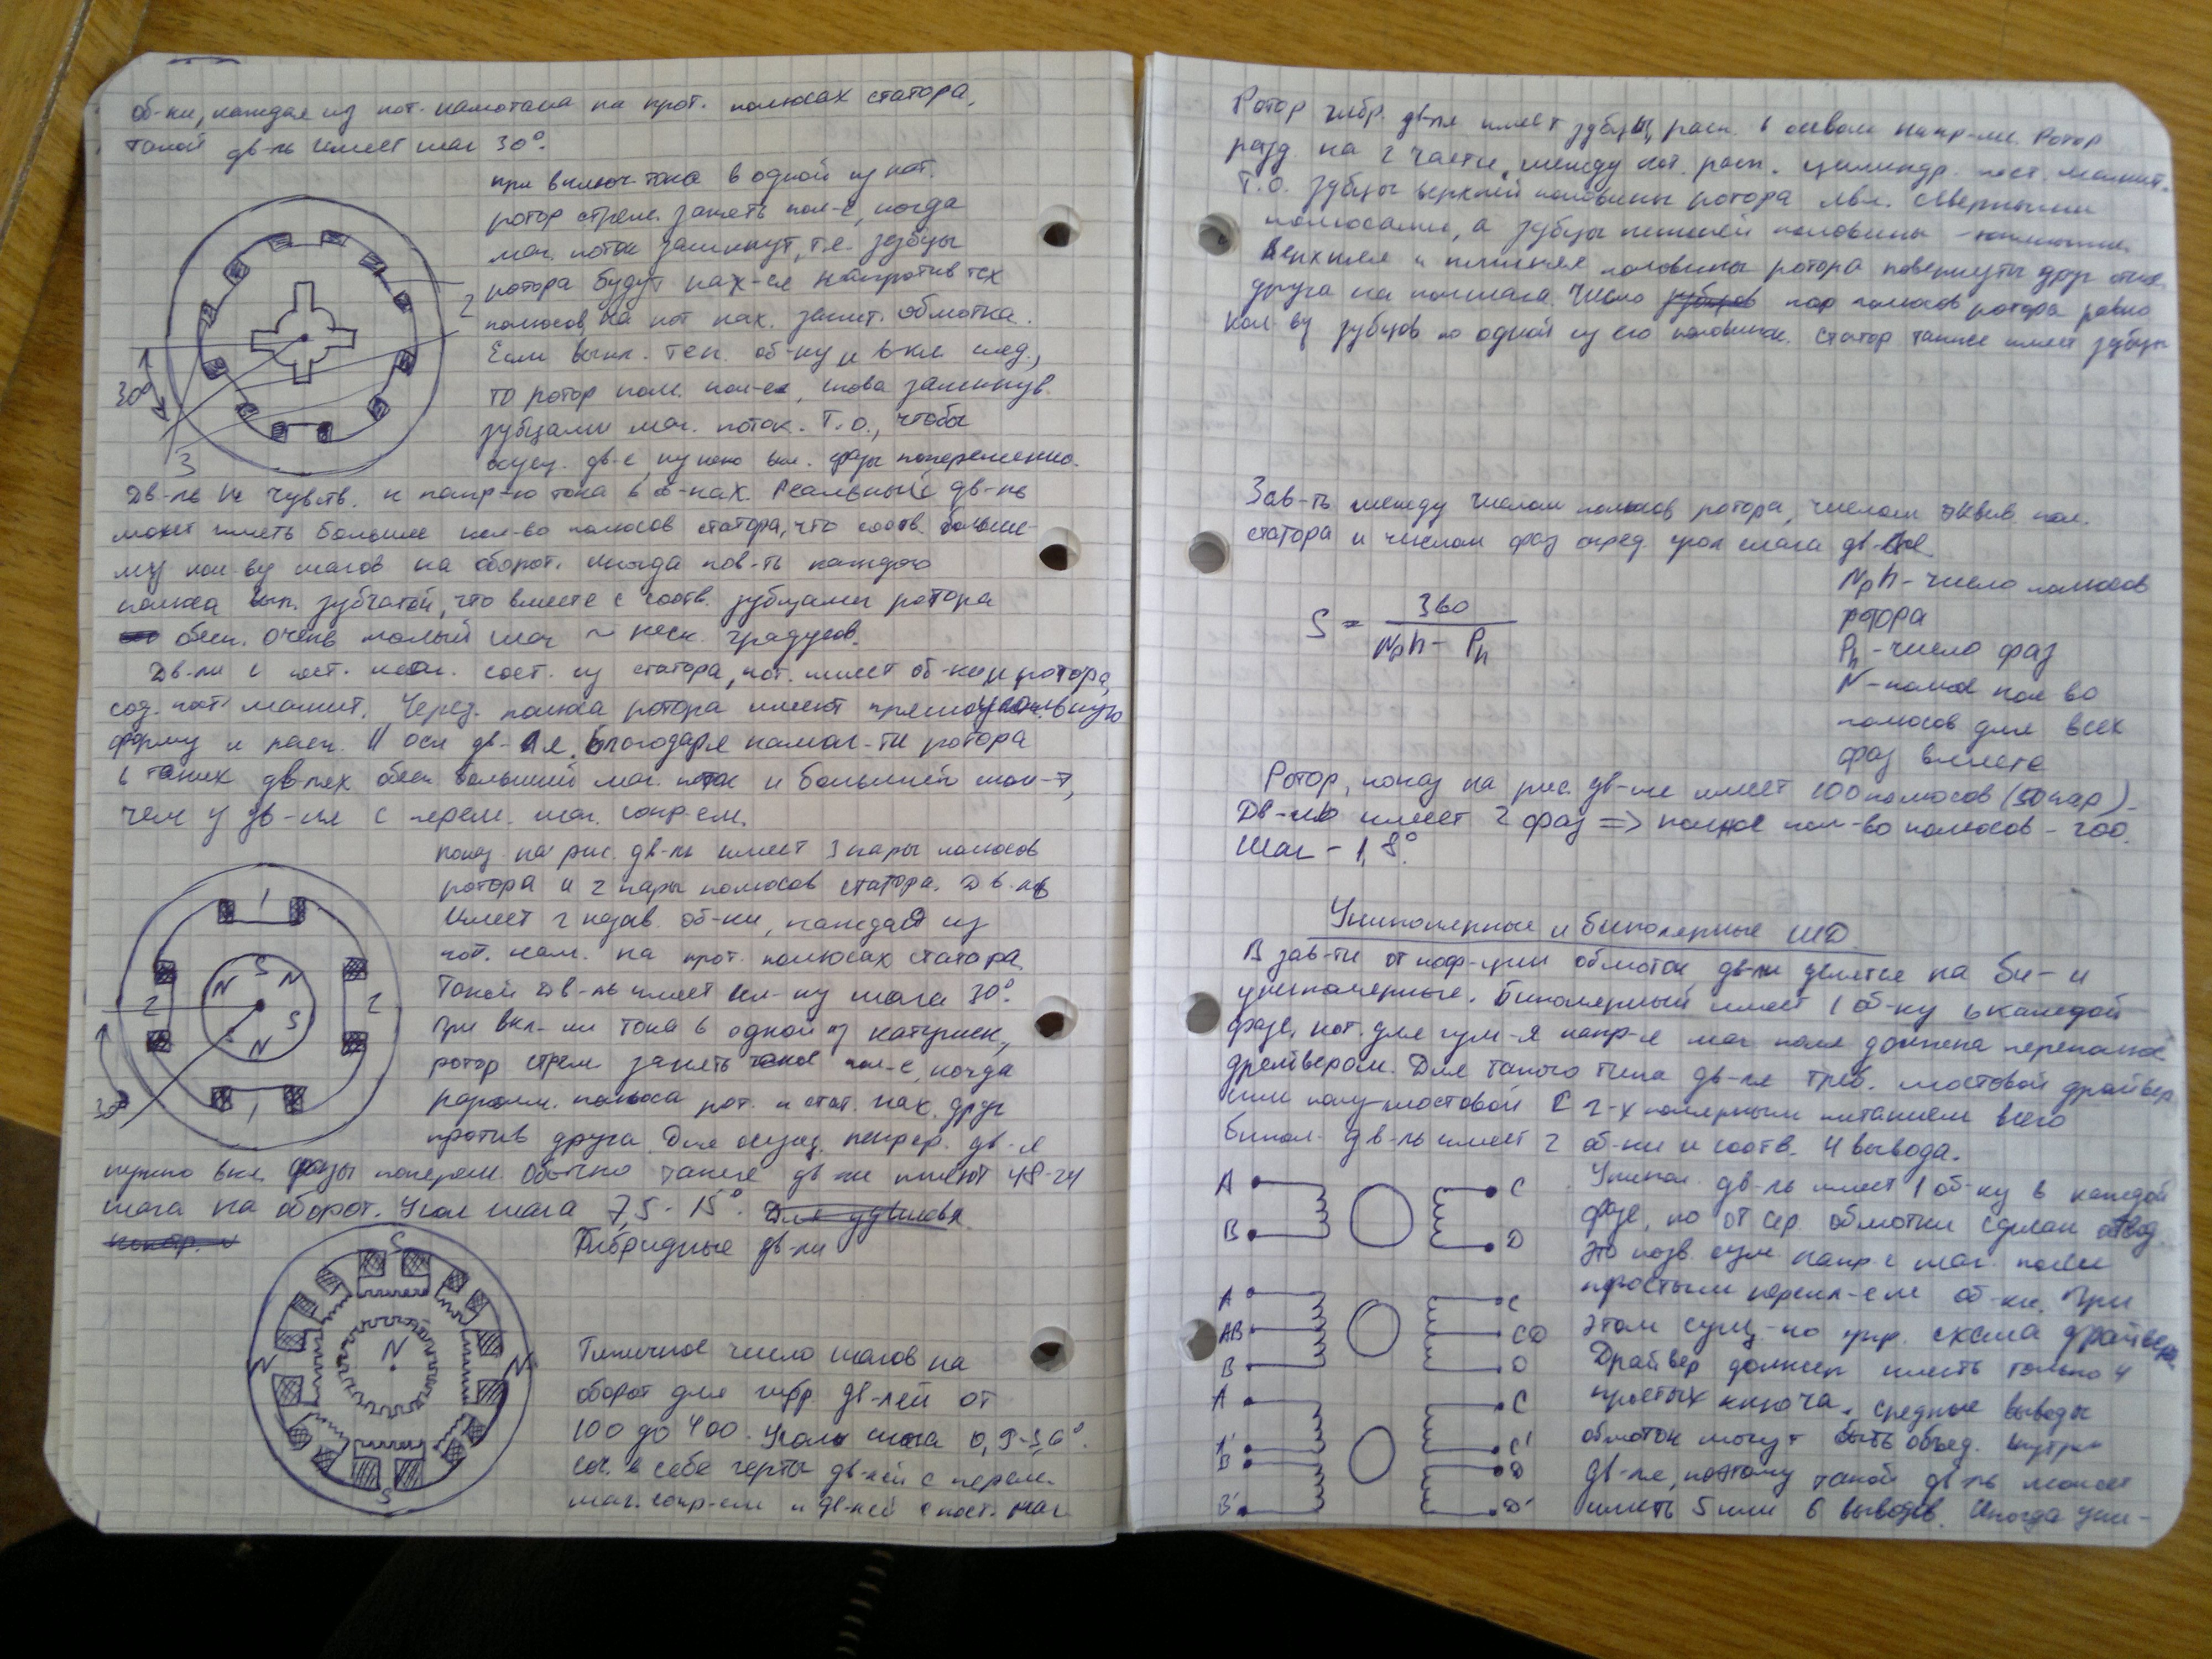 об-ки, каждая из кот. намотана на прот. полюсах статора,
такой дв-ль имеет шаг 30°.
при включ тока в одной из кот.
ротор стрем. занять пол-е, когда
маг. поток замкнут, т.е. зубцы
ротора будут нах-ся напротив тех
полюсов, на кот нах. запит. обмотка.
Если выкл. тек. об-ку и вкл след.,
то ротор пом. пол-е, снова замкнув
зубцами маг. поток. Т.о., чтобы
осущ. дв-е, нужно вкл. фазы попеременно.
2
30°
3
Дв-ль не чувств. к напр-ю тока в об-ках. Реальный дв-ль
может иметь большее кол-во полюсов статора, что соотв. больше-
му кол-ву шагов на оборот. Иногда пов-ть каждого
полюса вып. зубчатой, что вместе с соотв. зубцами ротора
обесп. очень малый шаг ~ неск. градусов.
Дв-ли с пост. маг. сост. из статора, кот. имеет об-ки, и ротора,
сод. пост магнит. Черед. полюса ротора имеют прямоугольную
форму и расп. || оси дв-ля. Благодаря намаг-ти ротора
в таких дв-лях обесп. больший маг. поток и больший мом-т,
чем у дв-ля с перем. маг. сопр-ем.
показ на рис. дв-ль имеет 3 пары полюсов
ротора и 2 пары полюсов статора. Дв-ль
имеет 2 незав. об-ки, каждая из
кот. нам. на прот. полюсах статора
Такой дв-ль имеет вел-ну шага 30°.
При вкл-ии тока в одной из катушек,
ротор стрем занять такое пол-е, когда
разноим. полюса рот. и стат. нах. друг
против друга. Для осущ. непрер. дв-я
нужно вкл. фазы поперем. Обычно такие дв-ли имеют 48-24
шага на оборот. Угол шага 7,5 - 15°.
1
2
N S N
2
S S
N
1
30°
Гибридные дв-ли
S
N N N
S
Типичное число шагов на
оборот для гибр. дв-лей от
100 до 400. Угол шага 0,9-3,6°.
соч. в себе черты дв-лей с перем.
маг. сопр-ем и дв-лей с пост. маг
Ротор гибр. дв-ля имеет зубцы, расп. в осевом напр-ии. Ротор
разд. на 2 части, между кот. расп. цилиндр. пост. магнит.
Т.о. зубцы верхней половины ротора явл. северными
полюсами, а зубцы нижней половины - южными.
Верхняя и нижняя половины ротора повернуты друг отн.
друга на полшага. Число зубцов пар полюсов ротора равно
кол-ву зубцов на одной из его половинок. Статор также имеет зубцы
Зав-ть между числом полюсов ротора, числом эквив пол.
статора и числом фаз опред. угол шага дв-ля.
S = 360 / Nph - Pn
Nph - число полюсов
ротора
Pn - число фаз
N - полное кол во
полюсов для всех
фаз вместе
Ротор, показ на рис. дв-ля имеет 100 полюсов (50 пар).
Дв-ль имеет 2 фаз => полное кол-во полюсов - 200.
Шаг - 1,8°.
Униполярные и биполярные ШД.
В зав-ти от конф-ции обмоток дв-ли делятся на би- и
униполярные. Биполярный имеет 1 об-ку в каждой
фазе, кот. для изм-я напр-я маг поля должна
драйвером. Для такого типа дв-ля треб. мостовой драйвер
или полу-мостовой с 2-х полярным питанием всего
бипол. дв-ль имеет 2 об-ки и соотв. 4 вывода.
Унипол. дв-ль имеет 1 об-ку в каждой
фазе, но от сер. обмотки сделан отвод.
Это позв. изм напр-е маг. поля
простым перекл-ем об-ки. При
этом сущ-но упр. схема драйвера
Драйвер должен иметь только 4
простых ключа. средние выводы
обмоток могут быть объед. внутри
дв-ля, поэтому такой дв-ль может
иметь 5 или 6 выводов. Иногда уни-
A C
B D
A C
AB CD
B D
A C
A' C'
B D
B' D'